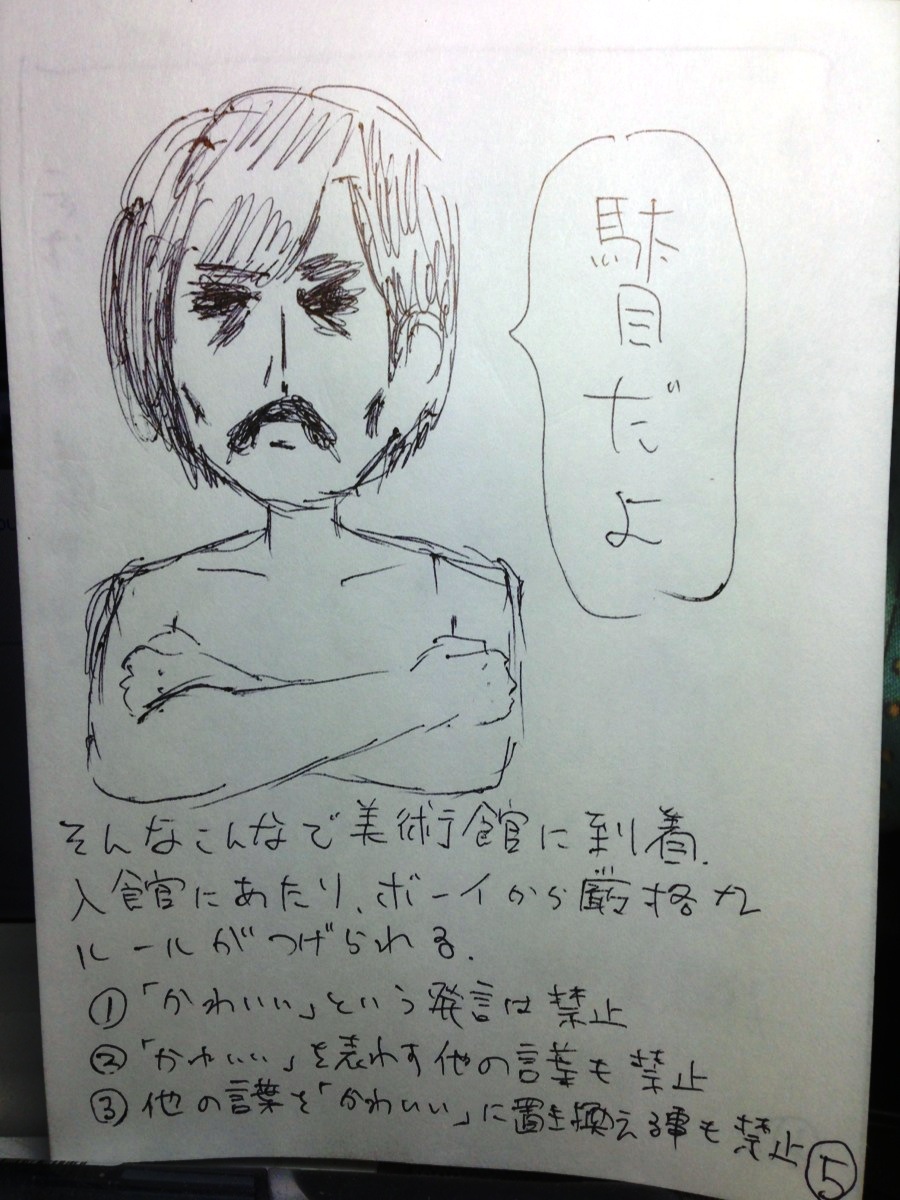 駄目だよ
そんなこんなで美術館に到着.
入館にあたり、ボーイから厳格な
ルールがつげられる.
①「かわいい」という発言は禁止
②「かわいい」を表わす他の言葉も禁止
③他の言葉を「かわいい」に置き換える事も禁止
⑤